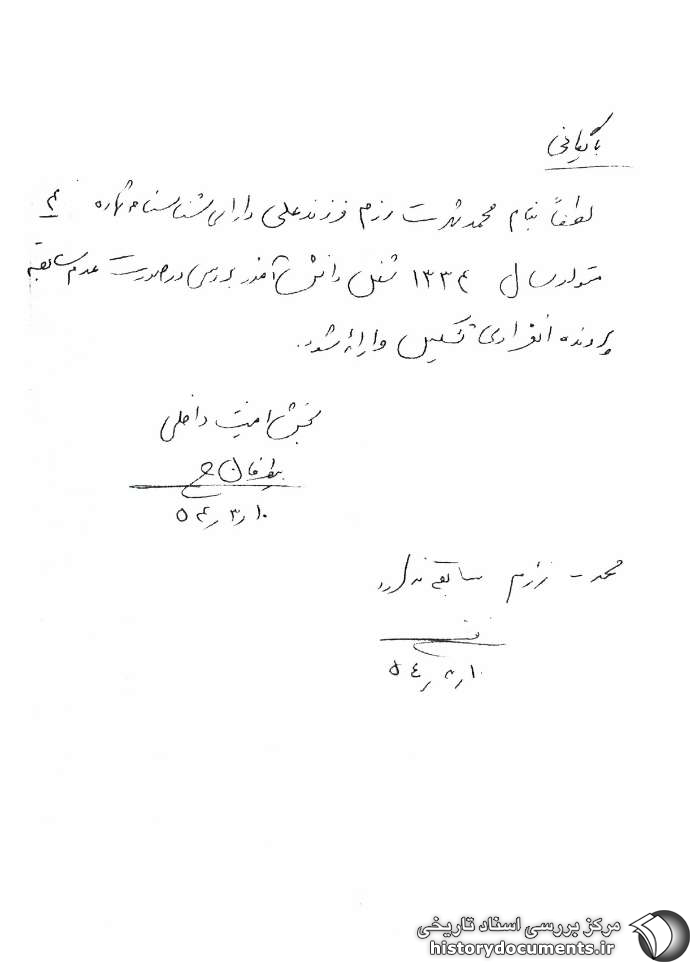 بایگانی
لطفاً بنام محمد شهرت رزم فرزند علی دارای شناسنامه شماره ۴
متولد سال ۱۳۳۴ شغل دانش آموز بررسی در صورت عدم سابقه
پرونده انفرادی تشکیل و ارائه شود.
بخش امنیت داخلی
۱۰ر۳ر۵۴
محمد - رزم سابقه ندارد
مرکز بررسی اسناد تاریخی
historydocuments.ir